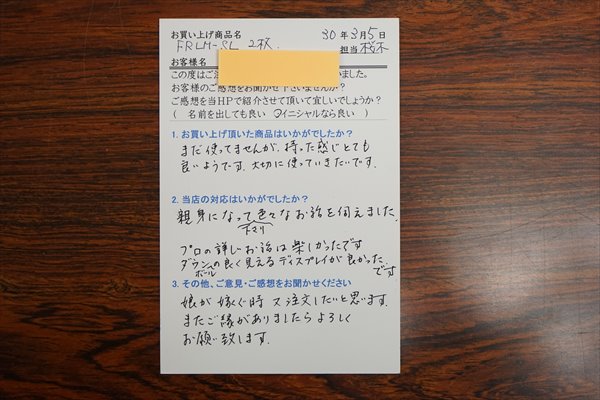 お買い上げ商品名 30年3月5日
FRLM-SL 2枚. 担当 桜木
お客様名
この度はご いました。
お客様のご感想をお聞かせ下さいませんか？
ご感想を当HPで紹介させて頂いて宜しいでしょうか？
（ 名前を出しても良い ○イニシャルなら良い ）
1. お買い上げ頂いた商品はいかがでしたか？
まだ使ってませんが、持った感じとても
良いようです。大切に使っていきたいです。
2. 当店の対応はいかがでしたか？
親身になって色々なお話を伺えました。
プロの詳しいお話は楽しかったです
ダウンの良く見えるディスプレイが良かった
ボール です
3. その他、ご意見・ご感想をお聞かせください
娘が嫁ぐ時又注文したいと思います。
またご縁がありましたらよろしく
お願い致します。